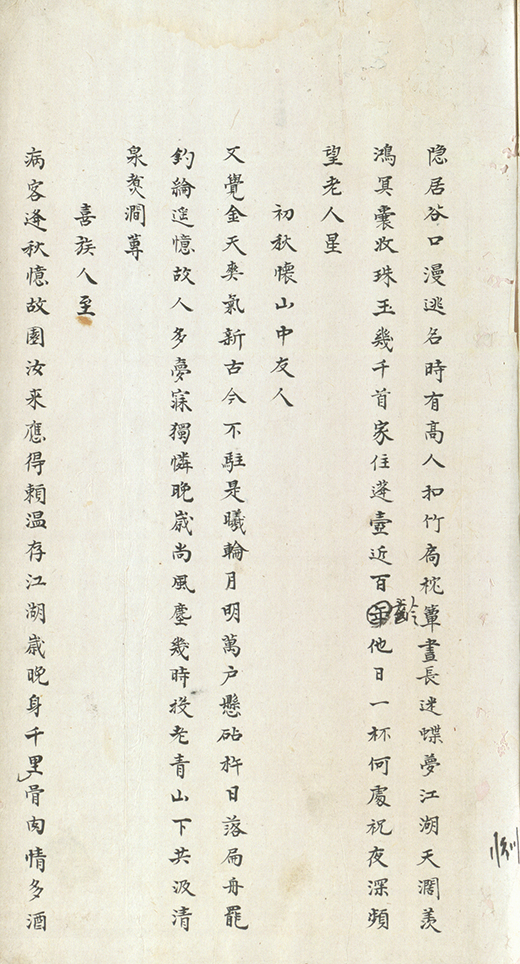 隐居谷口漫逃名時有高人和竹扃枕簟晝長迷蝶夢江湖天濶羨
鴻冥囊收珠玉幾千首家住蓬壺近百齡他日一杯何處祝夜深頻
望老人星
初秋懷山中友人
又覺金天爽氣新古今不駐是曦輪月明萬户懸砧杵日落扁舟罷
釣綸遥憶故人多夢寐獨憐晚歲尚風塵幾時投老青山下共汲清
泉煑澗蓴
喜族人至
病客逢秋憶故園汝來應得頼温存江湖歲晚身千里骨肉情多酒